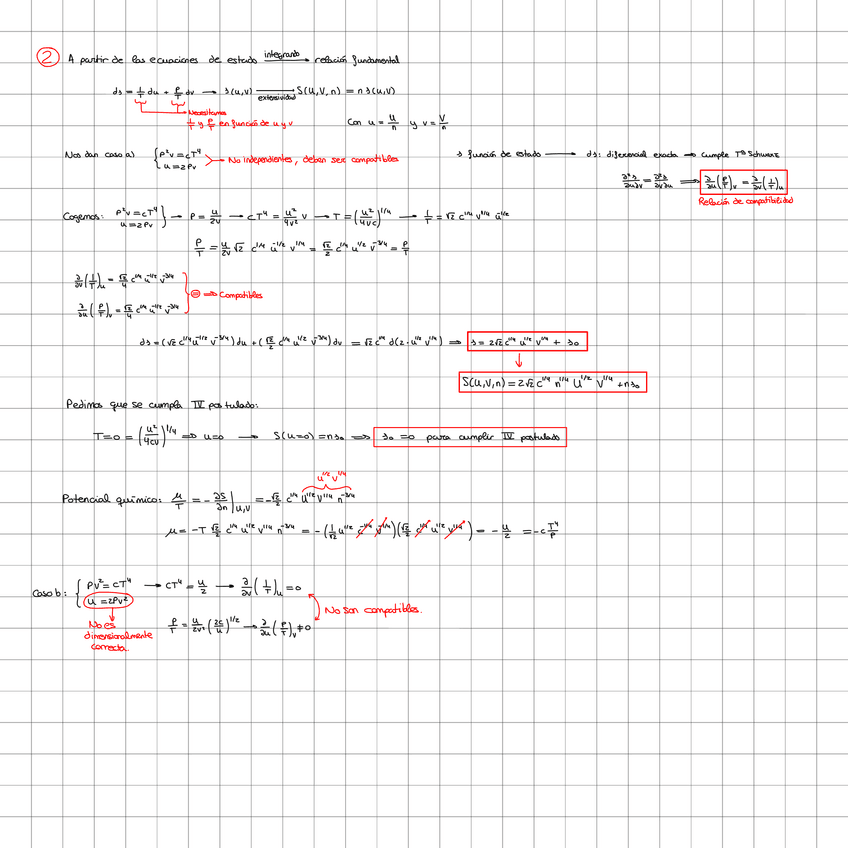 ② A partir de las ecuaciones de estado —integrando→ relación fundamental
ds = 1/T du + P/T dv → s(u,v) —extensividad→ S(U,V,n) = n s(u,v)
Necesitamos
1/T y P/T en función de u y v
Con u = U/n y v = V/n
Nos dan caso a) { P²v = cT⁴
u = 2Pv
No independientes, deben ser compatibles
s función de estado → ds: diferencial exacta → Cumple Tª Schwarz
∂²s/∂u∂v = ∂²s/∂v∂u ⟹ ∂/∂u (P/T)_v = ∂/∂v (1/T)_u
Relación de compatibilidad
Cogemos: P²v = cT⁴
u = 2Pv } → P = u/2v → cT⁴ = u²/4v² v → T = (u²/4vc)^1/4 → 1/T = √2 c^1/4 v^1/4 u^-1/2
P/T = u/2v √2 c^1/4 u^-1/2 v^1/4 = √2/2 c^1/4 u^1/2 v^-3/4 = P/T
∂/∂v (1/T)_u = √2/4 c^1/4 u^-1/2 v^-3/4
∂/∂u (P/T)_v = √2/4 c^1/4 u^-1/2 v^-3/4
= ⟹ Compatibles
ds = (√2 c^1/4 u^-1/2 v^-3/4) du + (√2/2 c^1/4 u^1/2 v^-3/4) dv = √2 c^1/4 d(2·u^1/2 v^1/4) ⟹ s = 2√2 c^1/4 u^1/2 v^1/4 + s₀
S(U,V,n) = 2√2 c^1/4 n^1/4 U^1/2 V^1/4 + ns₀
Pedimos que se cumpla IV postulado:
T=0 = (u²/4cv)^1/4 ⟹ u=0 → S(u=0) = ns₀ ⟹ s₀ = 0 para cumplir IV postulado
u^1/2 v^1/4
Potencial químico: μ/T = - ∂S/∂n |_U,V = -√2/2 c^1/4 U^1/2 V^1/4 n^-3/4
μ = -T √2/2 c^1/4 U^1/2 V^1/4 n^-3/4 = -(1/√2 u^1/2 c^-1/4 v^-1/4)(√2/2 c^1/4 u^1/2 v^1/4) = -u/2 = -c T⁴/P
Caso b: { Pv² = cT⁴ → cT⁴ = u/2 → ∂/∂v (1/T)_u = 0
u = 2Pv²
No son compatibles.
No es
dimensionalmente
correcta.
P/T = u/2v² (2c/u)^1/2 → ∂/∂u (P/T)_v ≠ 0